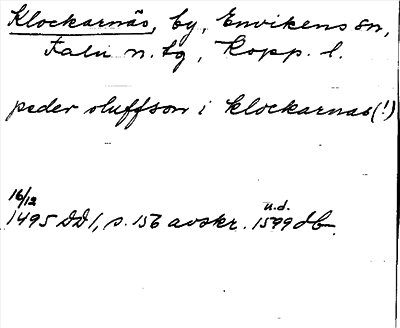 Klockarnäs, by, Envikens sn,
Falu n. tg, Kopp. l.
peder oluffson i klockarnas (!)
16/12 u.d.
1495 DD 1, s. 156 avskr. 1599 db.